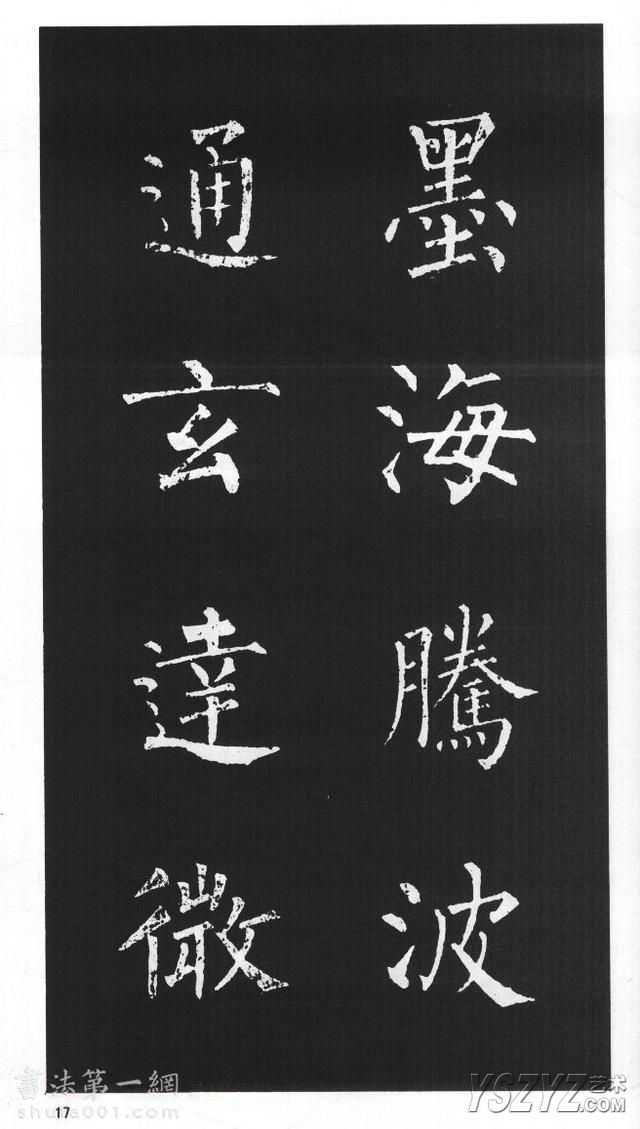 墨海騰波
通玄達微
書法第一網
shufa001.com
17
YSZYZ艺术
.COM